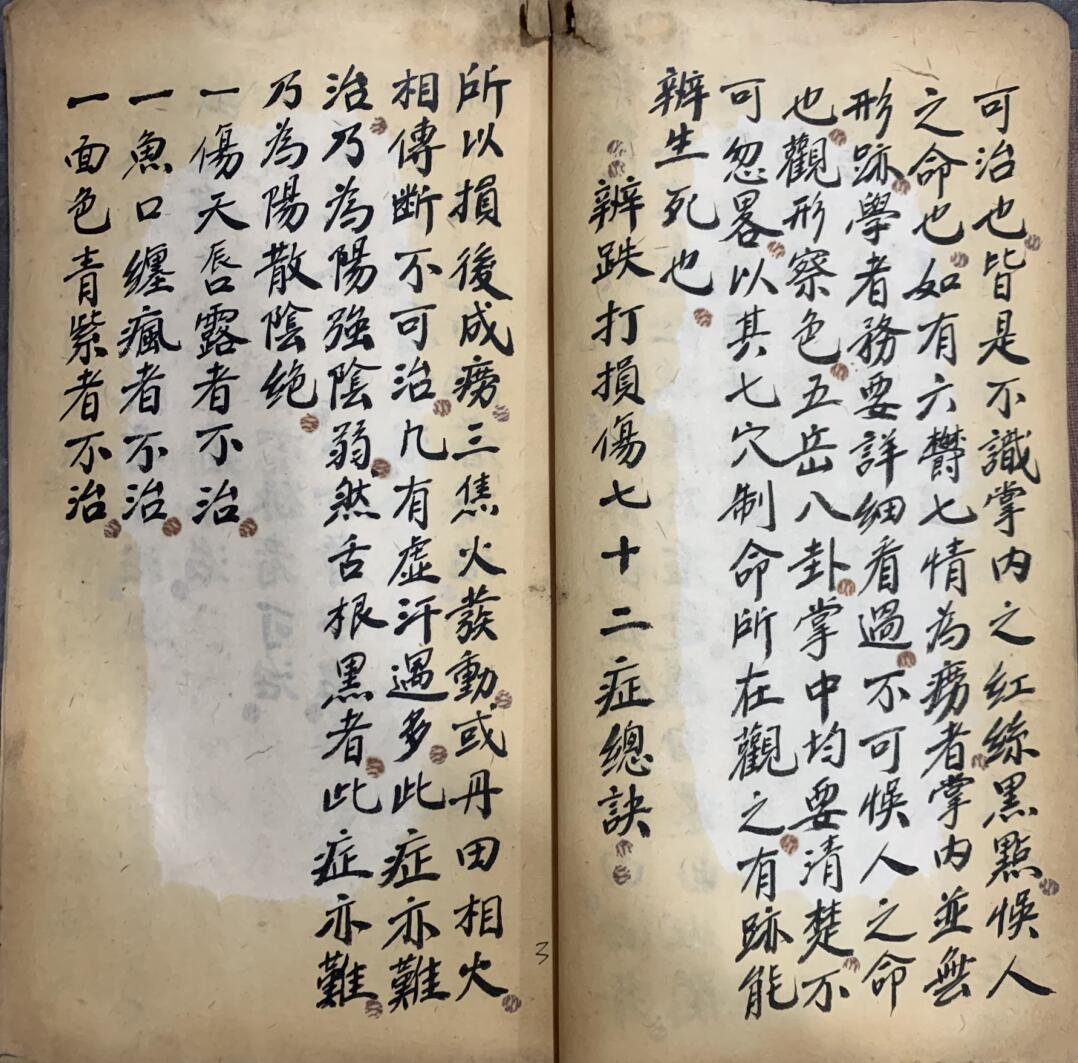 可治也皆是不識掌内之紅絲黑點悞人
之命也如有六欝七情為癆者掌内並無
形跡學者務要詳細看過不可悞人之命
也觀形察色五岳八卦掌中均要清楚不
可忽畧以其七穴制命所在觀之有跡能
辨生死也
辨跌打損傷七十二症總訣
所以損後成癆三焦火發動或丹田相火
相傳斷不可治凡有虛汗過多此症亦難
治乃為陽強陰弱然舌根黑者此症亦難
乃為陽散陰绝
一傷天唇口露者不治
一魚口纏瘋者不治
一面色青紫者不治
3